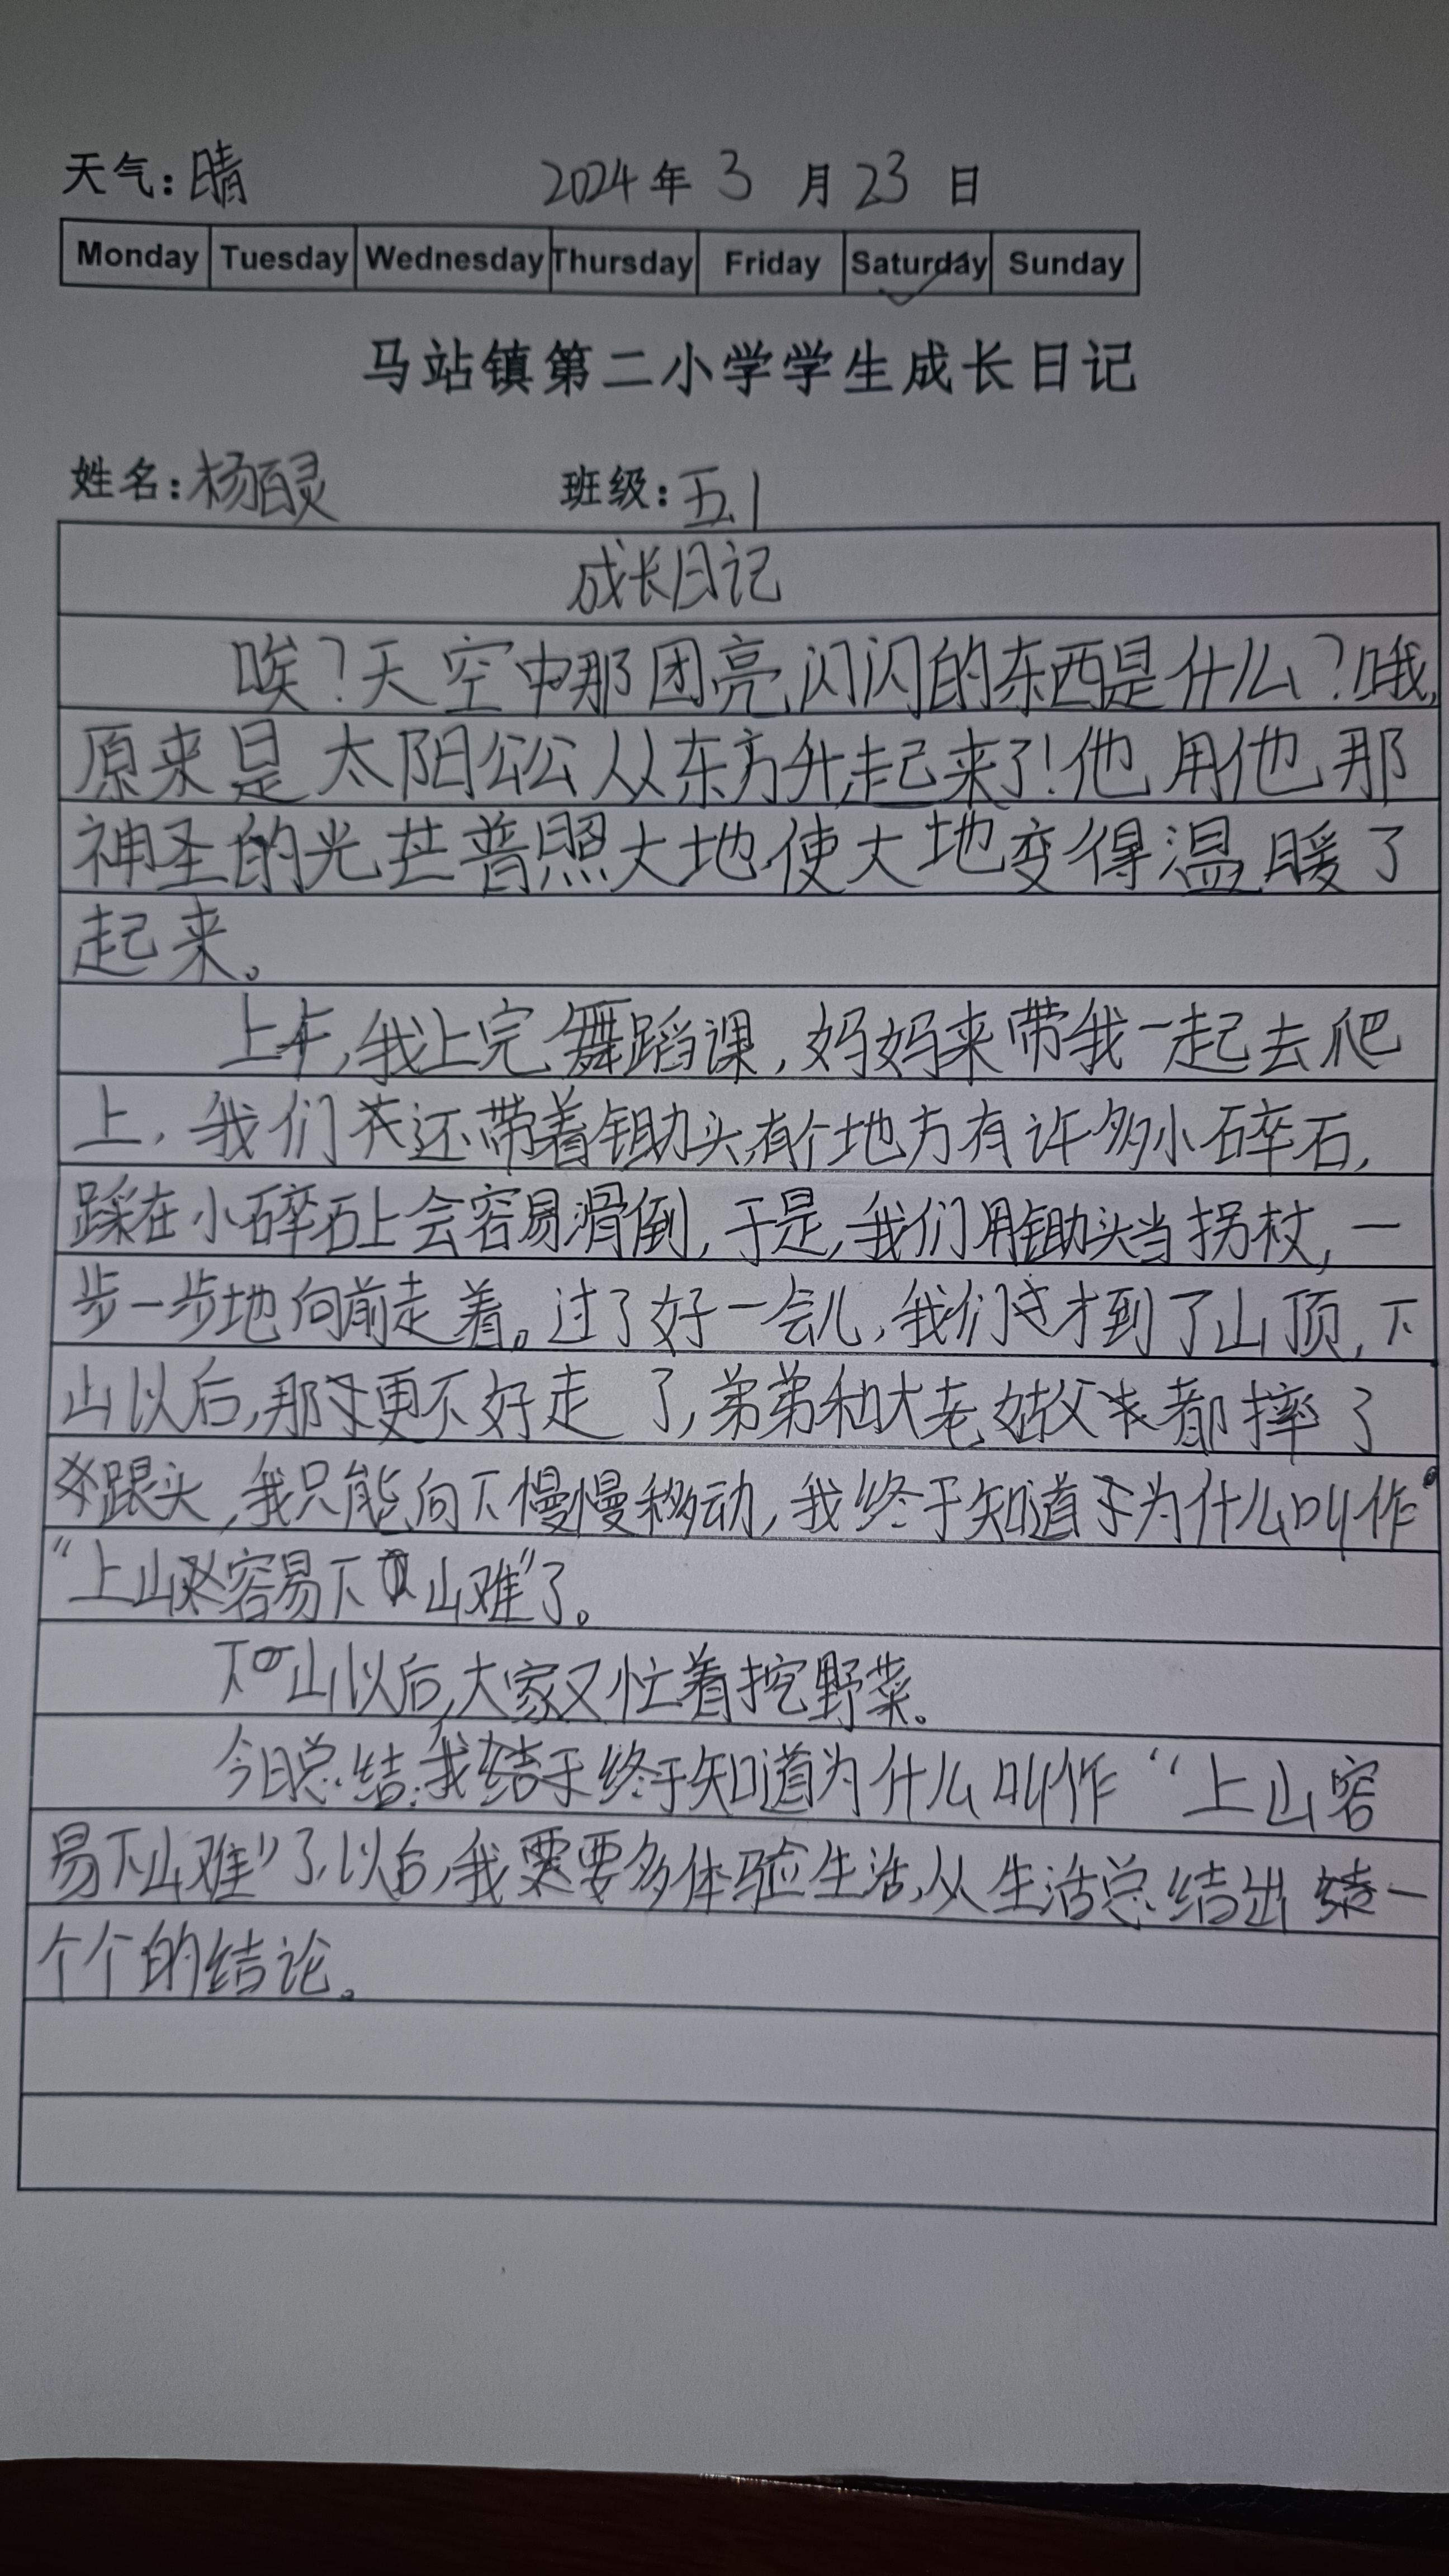 天气：晴 2024年 3 月 23 日
Monday Tuesday Wednesday Thursday Friday Saturday Sunday
马站镇第二小学学生成长日记
姓名：杨百灵 班级：五.1
成长日记
唉？天空中那团亮闪闪的东西是什么？哦，
原来是太阳公公从东方升起来了！他用他那
神圣的光芒普照大地，使大地变得温暖了
起来。
上午，我上完舞蹈课，妈妈来带我一起去爬
上，我们还带着锄头，有个地方有许多小碎石，
踩在小碎石上会容易滑倒，于是，我们用锄头当拐杖，一
步一步地向前走着。过了好一会儿，我们才到了山顶，下
山以后，那更不好走了，弟弟和大老姑父都摔了
跟头，我只能向下慢慢移动，我终于知道为什么叫作
“上山容易下山难”了。
下山以后，大家又忙着挖野菜。
今日总结：我终于知道为什么叫作“上山容
易下山难”了，以后，我要多体验生活，从生活总结出一
个个的结论。